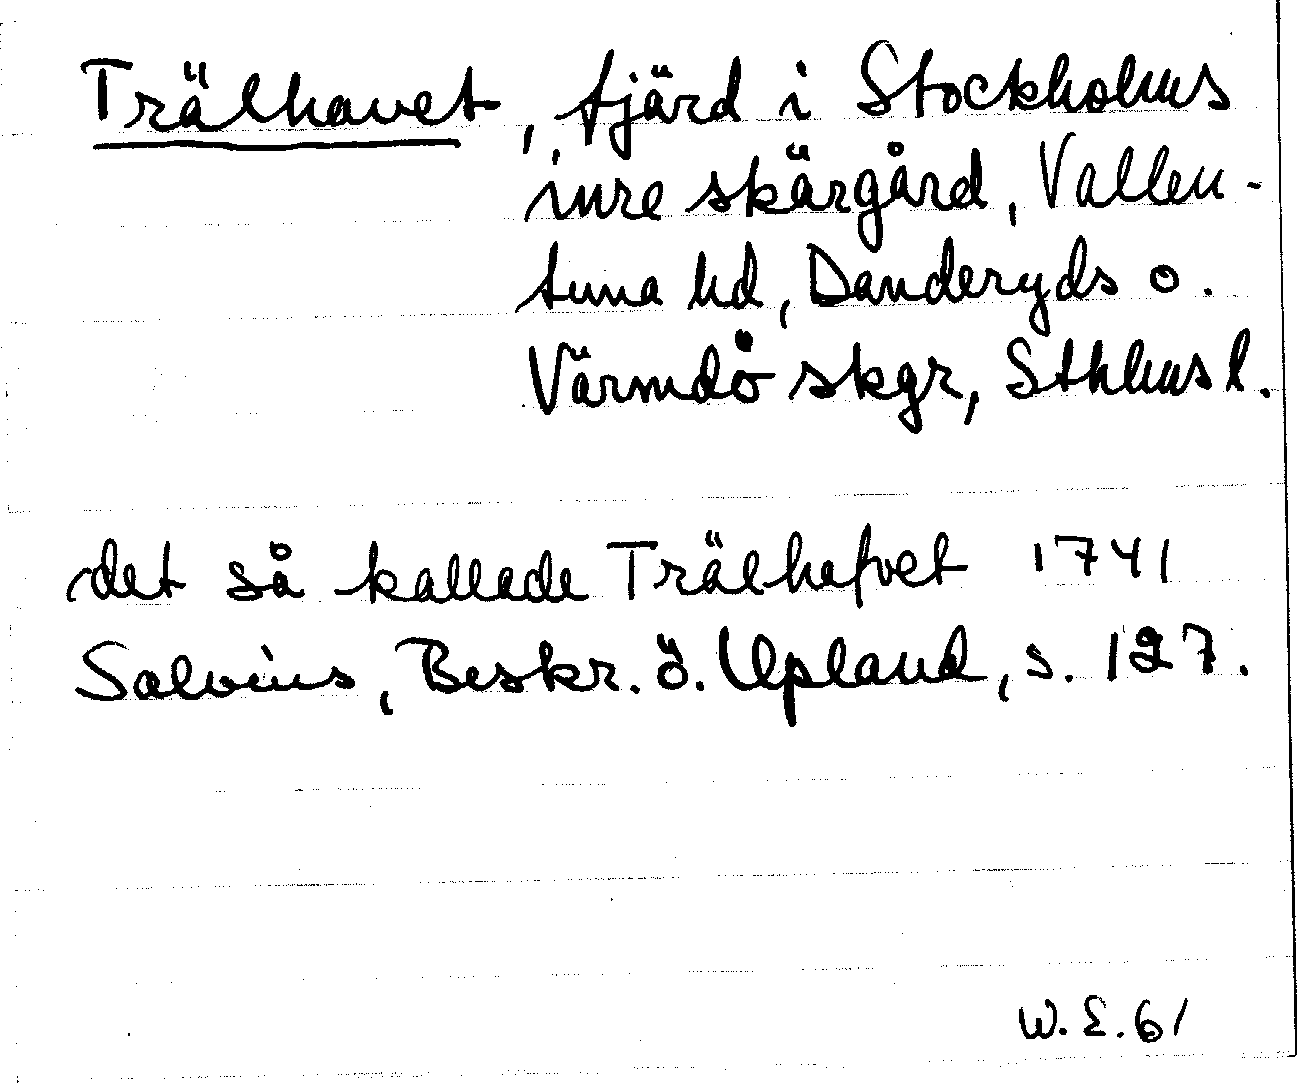 Trälhavet, fjärd i Stockholms
inre skärgård, Vallen-
tuna hd, Danderyds o.
Värmdö skgr, Sthlms l.
det så kallade Trälhafvet 1741
Salvius, Beskr. ö. Upland, s. 127.
W.E.61